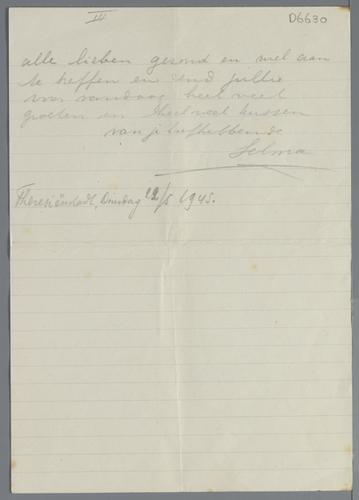 III
D6630
alle lieben gezond en wel aan
te treffen en zend jullie
voor vandaag heel veel
groeten en heel veel kussen
van je liefhebbende
Selma
Theresiënstadt, Dinsdag /5 1945.